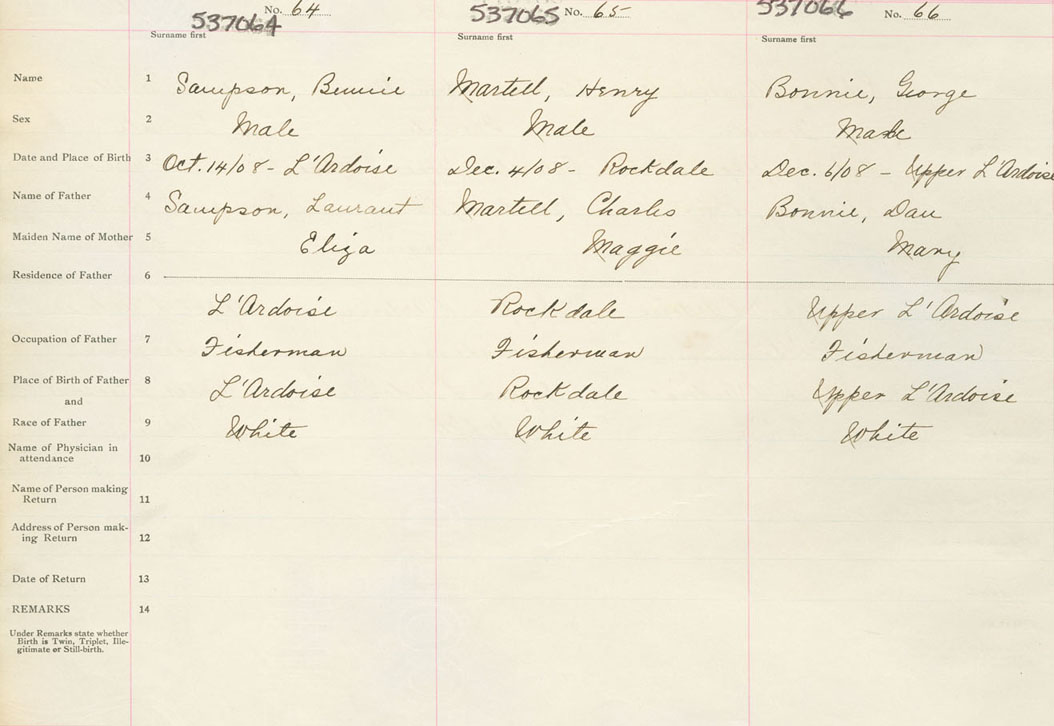 537064 No. 64 537065 No. 65 537066 No. 66
Surname first Surname first Surname first
Name 1 Sampson, Bennie Martell, Henry Bonnie, George
Sex 2 Male Male Male
Date and Place of Birth 3 Oct. 14/08 - L'Ardoise Dec. 4/08 - Rockdale Dec. 6/08 - Upper L'Ardoise
Name of Father 4 Sampson, Laurant Martell, Charles Bonnie, Dan
Maiden Name of Mother 5 Eliza Maggie Mary
Residence of Father 6
L'Ardoise Rockdale Upper L'Ardoise
Occupation of Father 7 Fisherman Fisherman Fisherman
Place of Birth of Father 8 L'Ardoise Rockdale Upper L'Ardoise
and
Race of Father 9 White White White
Name of Physician in
attendance 10
Name of Person making
Return 11
Address of Person mak-
ing Return 12
Date of Return 13
REMARKS 14
Under Remarks state whether
Birth is Twin, Triplet, Ille-
gitimate or Still-birth.